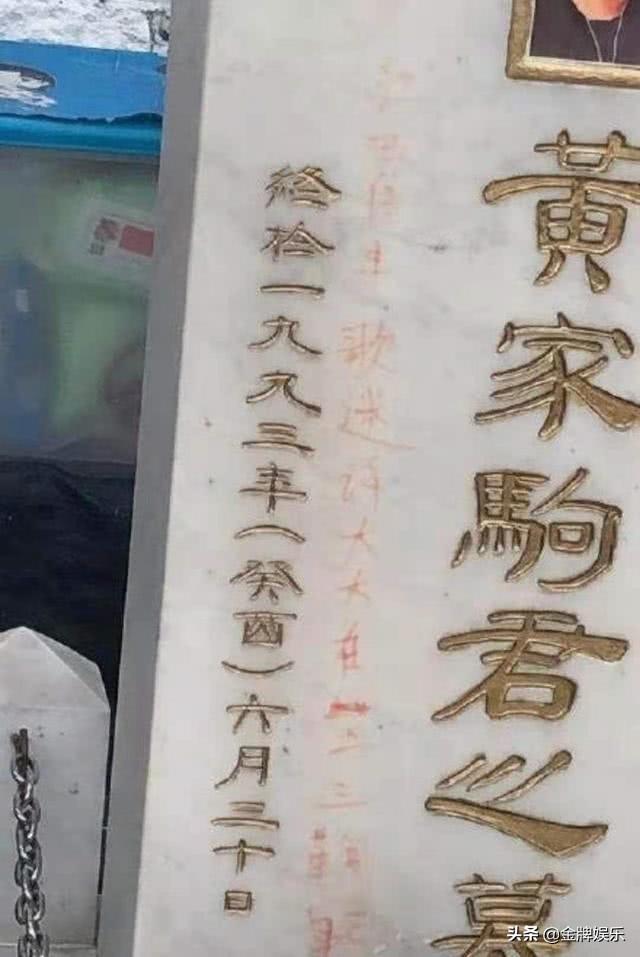 黃家駒君之墓
生歌迷许大大在三鞠
終於一九九三年(癸酉)六月三十日
头条 @金牌娱乐